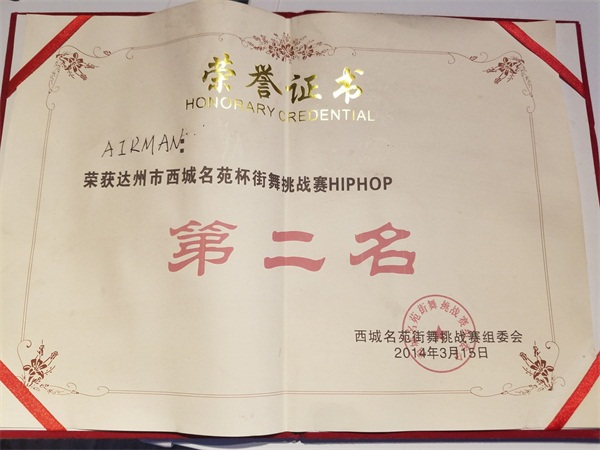 荣誉证书
HONORARY CREDENTIAL
AIRMAN:
荣获达州市西城名苑杯街舞挑战赛HIPHOP
第二名
西城名苑街舞挑战赛组委会
2014年3月15日